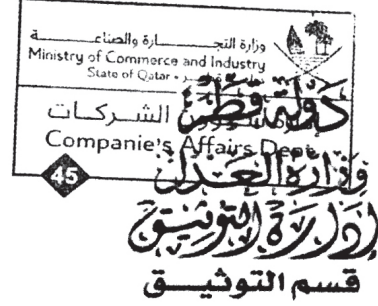 وزارة التجـــــارة والصناعـــــة
Ministry of Commerce and Industry
State of Qatar •
دولة قطر
الشـركـات
Companie's Affairs Dept.
45
وزارة العدل
إدارة التوثيق
قسم التوثيـــق